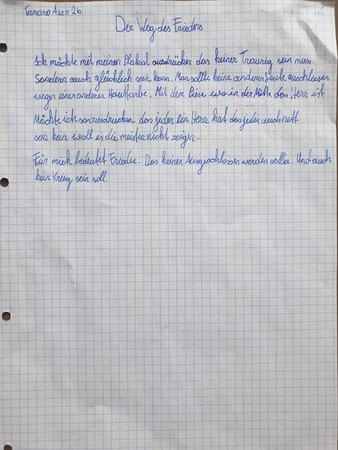 Tamara Axen 2b
Der Weg des Friedens
Ich möchte mit meinen Plakat ausdrücken das keiner Traurig sein muss.
Sondern auch glücklich sein kann. Man sollte keine anderen Leute auschliesen
wegen einer anderen Hautfarbe. Mit dem wo in der Mitte das Herz ist.
Möchte ich so ausdrucken das jeder ein Herz hat das jeder auch nett
sein kann woll es die meisten nicht zeigen.
Für mich bedeutet Frieden. Das keiner Ausgeschlossen werden sollte. Und auch
kein Krieg sein soll.